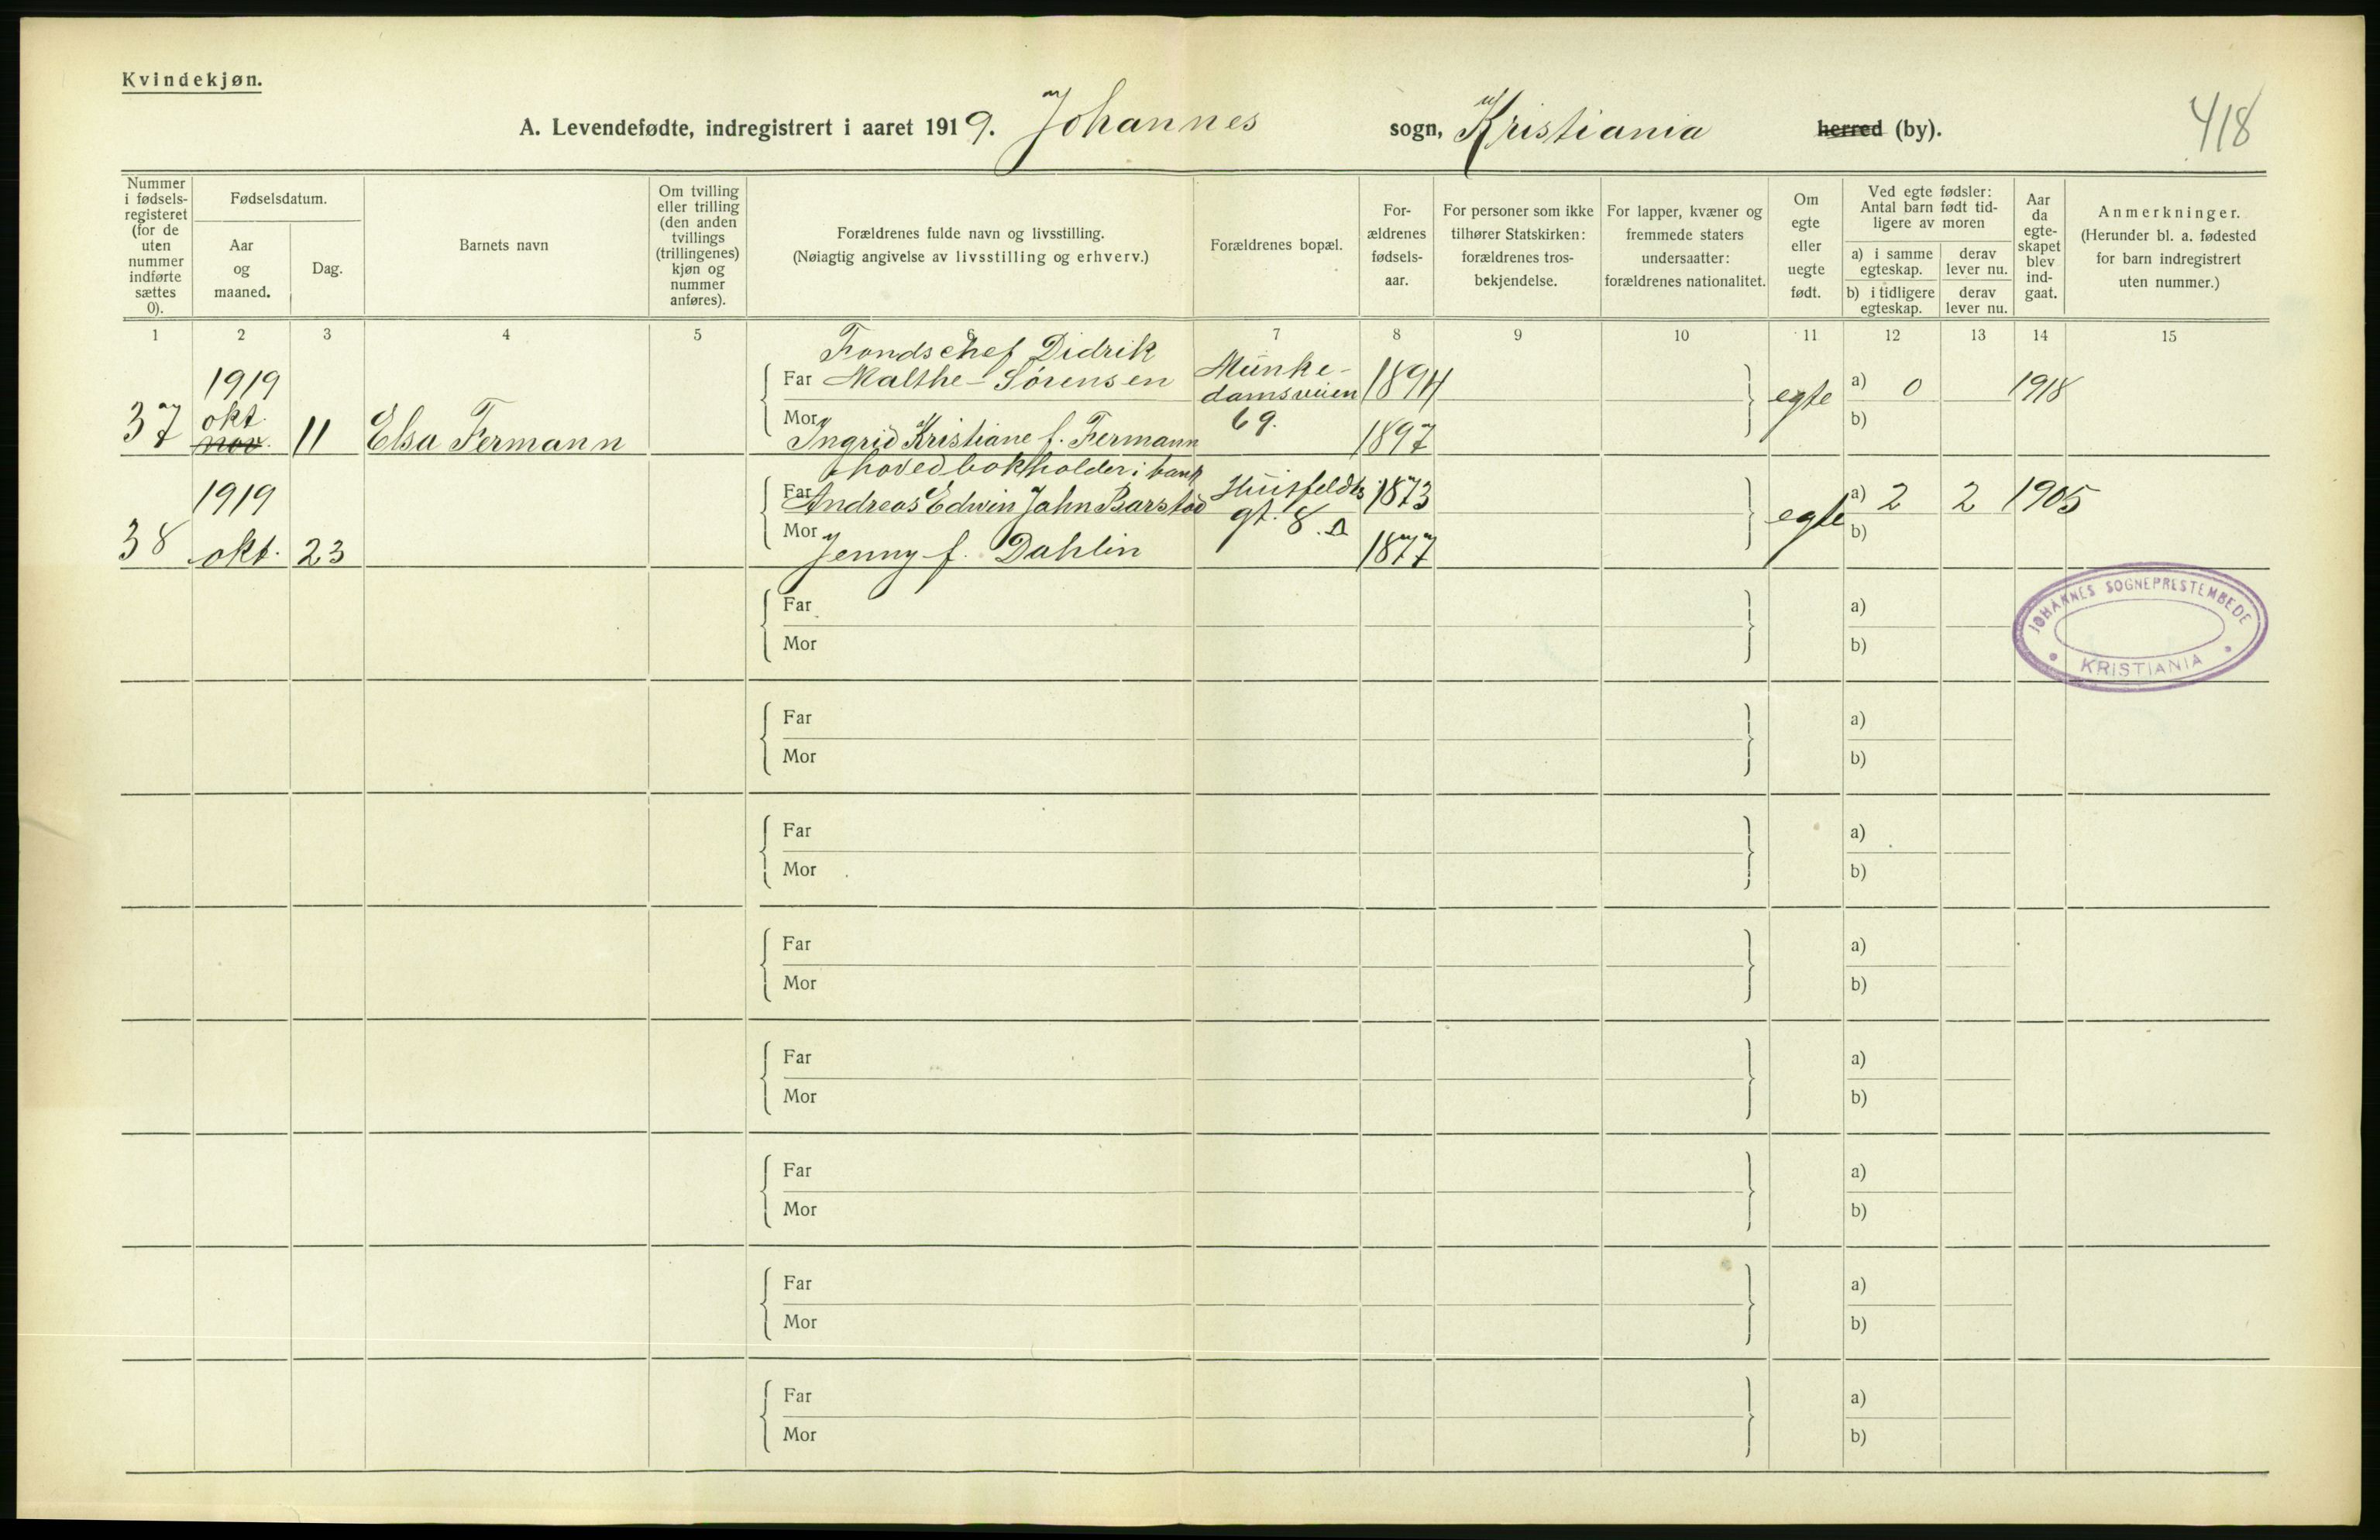 Kvindekjøn.
A. Levendefødte, indregistrert i aaret 1919. Johannes sogn, Kristiania herred (by).
418
Nummer i fødsels-registeret (for de uten nummer indførte sættes 0).
Fødselsdatum.
Aar og maaned.
Dag.
Barnets navn
Om tvilling eller trilling (den anden tvillings (trillingenes) kjøn og nummer anføres).
Forældrenes fulde navn og livsstilling.
(Nøiagtig angivelse av livsstilling og erhverv.)
Forældrenes bopæl.
For-ældrenes fødsels-aar.
For personer som ikke tilhører Statskirken: forældrenes tros-bekjendelse.
For lapper, kvæner og fremmede staters undersaatter: forældrenes nationalitet.
Om egte eller uegte født.
Ved egte fødsler:
Antal barn født tid-ligere av moren
a) i samme egteskap.
derav lever nu.
b) i tidligere egteskap.
derav lever nu.
Aar da egte-skapet blev ind-gaat.
Anmerkninger.
(Herunder bl. a. fødested for barn indregistrert uten nummer.)
1 2 3 4 5 6 7 8 9 10 11 12 13 14 15
37 1919 okt. nov. 11 Elsa Fermann
Fondschef Didrik
Far Malthe-Sørensen
Mor Ingrid Kristiane f. Fermann
Munke-
damsveien
69.
1894
1897
egte a) 0 1918
b)
38 1919 okt. 23
hovedbokholder i bank
Far Andreas Edwin Jahn Barstad
Mor Jenny f. Dahlin
Huitfeldts
gt. 8.
1873
1877
egte a) 2 2 1905
b)
JOHANNES SOGNEPRESTEMBEDE
KRISTIANIA
Far a)
Mor b)
Far a)
Mor b)
Far a)
Mor b)
Far a)
Mor b)
Far a)
Mor b)
Far a)
Mor b)
Far a)
Mor b)
Far a)
Mor b)